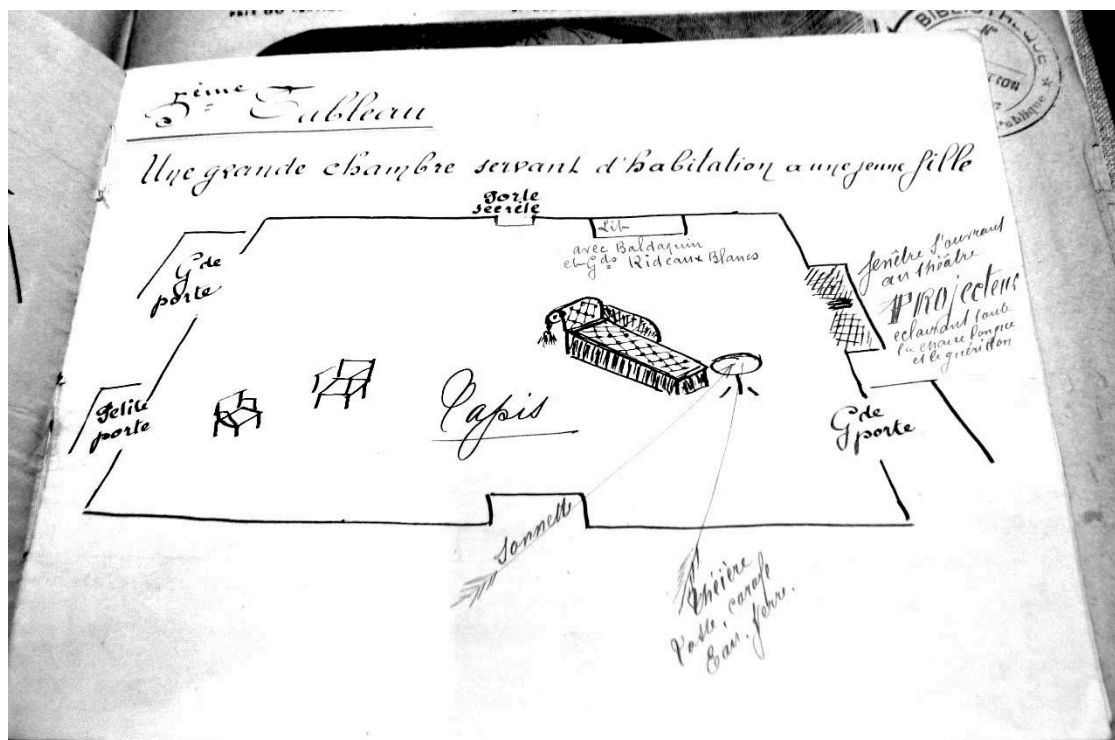 5ème Tableau
Une grande chambre servant d'habitation a une jeune fille
Porte
secrète
Lit
avec Baldaquin
et Gds Rideaux Blancs
Gde
porte
fenêtre s'ouvrant
au théâtre
PROJecteur
eclairant toute
la chaise longue
et le guéridon
Petite
porte
Tapis
Gde
porte
Sonnette
Théière
Tasse, carafe
Eau. Verre.
BIBLIOTHÈQUE
publique